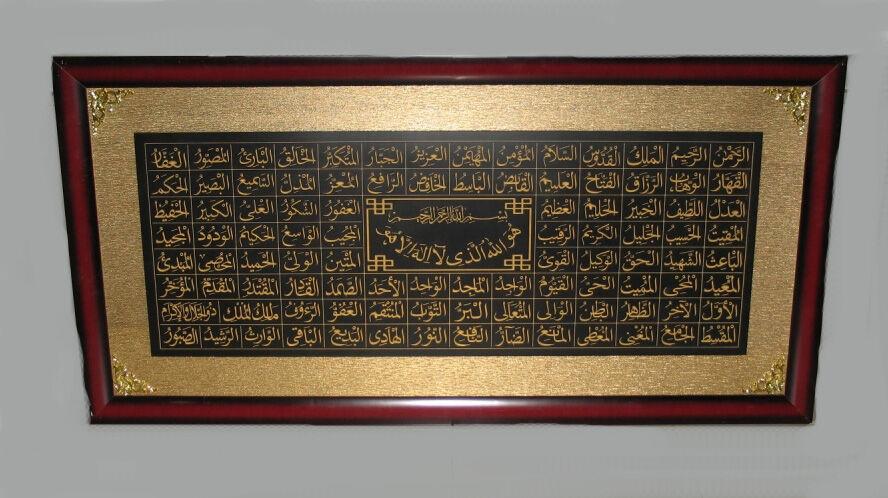 الرَّحْمٰنُ الرَّحِيْمُ الْمَلِكُ الْقُدُّوْسُ السَّلَامُ الْمُؤْمِنُ الْمُهَيْمِنُ الْعَزِيْزُ الْجَبَّارُ الْمُتَكَبِّرُ الْخَالِقُ الْبَارِئُ الْمُصَوِّرُ الْغَفَّارُ
الْقَهَّارُ الْوَهَّابُ الرَّزَّاقُ الْفَتَّاحُ الْعَلِيْمُ الْقَابِضُ الْبَاسِطُ الْخَافِضُ الرَّافِعُ الْمُعِزُّ الْمُذِلُّ السَّمِيْعُ الْبَصِيْرُ الْحَكَمُ
الْعَدْلُ اللَّطِيْفُ الْخَبِيْرُ الْحَلِيْمُ الْعَظِيْمُ الْغَفُوْرُ الشَّكُوْرُ الْعَلِيُّ الْكَبِيْرُ الْحَفِيْظُ
بسم الله الرحمن الرحيم
الْمُقِيْتُ الْحَسِيْبُ الْجَلِيْلُ الْكَرِيْمُ الرَّقِيْبُ الْمُجِيْبُ الْوَاسِعُ الْحَكِيْمُ الْوَدُوْدُ الْمَجِيْدُ
هُوَ اللهُ الَّذِى لَا إِلٰهَ إِلَّا هُوَ
الْبَاعِثُ الشَّهِيْدُ الْحَقُّ الْوَكِيْلُ الْقَوِيُّ الْمَتِيْنُ الْوَلِيُّ الْحَمِيْدُ الْمُحْصِي الْمُبْدِئُ
الْمُعِيْدُ الْمُحْيِي الْمُمِيْتُ الْحَيُّ الْقَيُّوْمُ الْوَاجِدُ الْمَاجِدُ الْوَاحِدُ الْأَحَدُ الصَّمَدُ الْقَادِرُ الْمُقْتَدِرُ الْمُقَدِّمُ الْمُؤَخِّرُ
الْأَوَّلُ الْآخِرُ الظَّاهِرُ الْبَاطِنُ الْوَالِي الْمُتَعَالِي الْبَرُّ التَّوَّابُ الْمُنْتَقِمُ الْعَفُوُّ الرَّءُوْفُ مَالِكُ الْمُلْكِ ذُو الْجَلَالِ وَالْإِكْرَامِ
الْمُقْسِطُ الْجَامِعُ الْمُغْنِي الْمُعْطِي الْمَانِعُ الضَّارُّ النَّافِعُ النُّوْرُ الْهَادِى الْبَدِيْعُ الْبَاقِي الْوَارِثُ الرَّشِيْدُ الصَّبُوْرُ